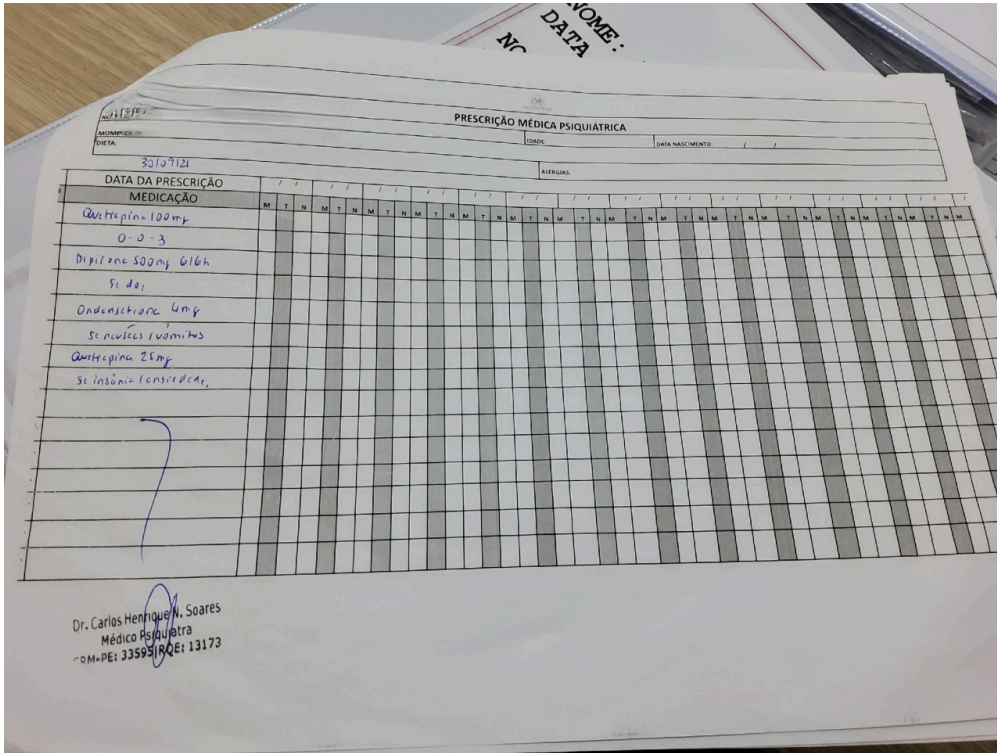 NOME:
DATA
PRESCRIÇÃO MÉDICA PSIQUIÁTRICA
IDADE:
DATA NASCIMENTO / /
DIETA:
ALERGIAS:
DATA DA PRESCRIÇÃO / / / / / / / / / / / / / / / / / / / / / / / / / /
MEDICAÇÃO M T N M T N M T N M T N M T N M T N M T N M T N M T N M T N M T N M T N M T N M
Quetiapina 100mg
0-0-3
Dipirona 500mg 6/6h
Se dor
Ondansetrona 4mg
Se náuseas / vômitos
Quetiapina 25mg
Se insônia / ansiedade,
Dr. Carlos Henrique N. Soares
Médico Psiquiatra
CRM-PE: 33595|RQE: 13173